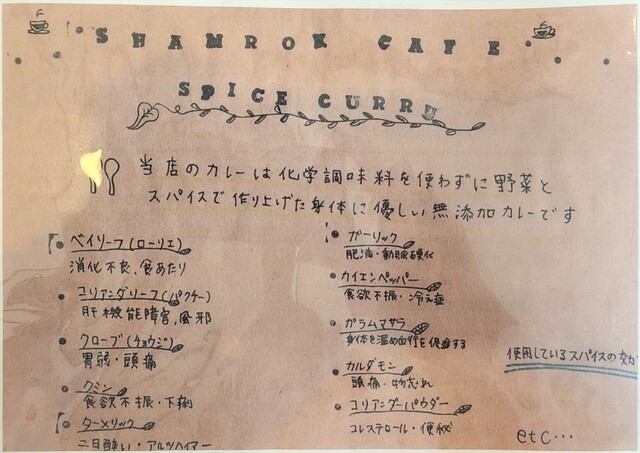 SHAMROK CAFE
SPICE CURRY
当店のカレーは化学調味料を使わずに野菜と
スパイスで作り上げた身体に優しい無添加カレーです
ベイリーフ(ローリエ)
消化不良、食あたり
コリアンダリーフ(パクチー)
肝機能障害、風邪
クローブ(チョウジ)
胃弱・頭痛
クミン
食欲不振・下痢
ターメリック
二日酔い・アルツハイマー
ガーリック
肥満・動脈硬化
カイエンペッパー
食欲不振・冷え症
ガラムマサラ
身体を温め血行を促進する
カルダモン
頭痛・物忘れ
コリアンダーパウダー
コレステロール・便秘
使用しているスパイスの効力
etc…